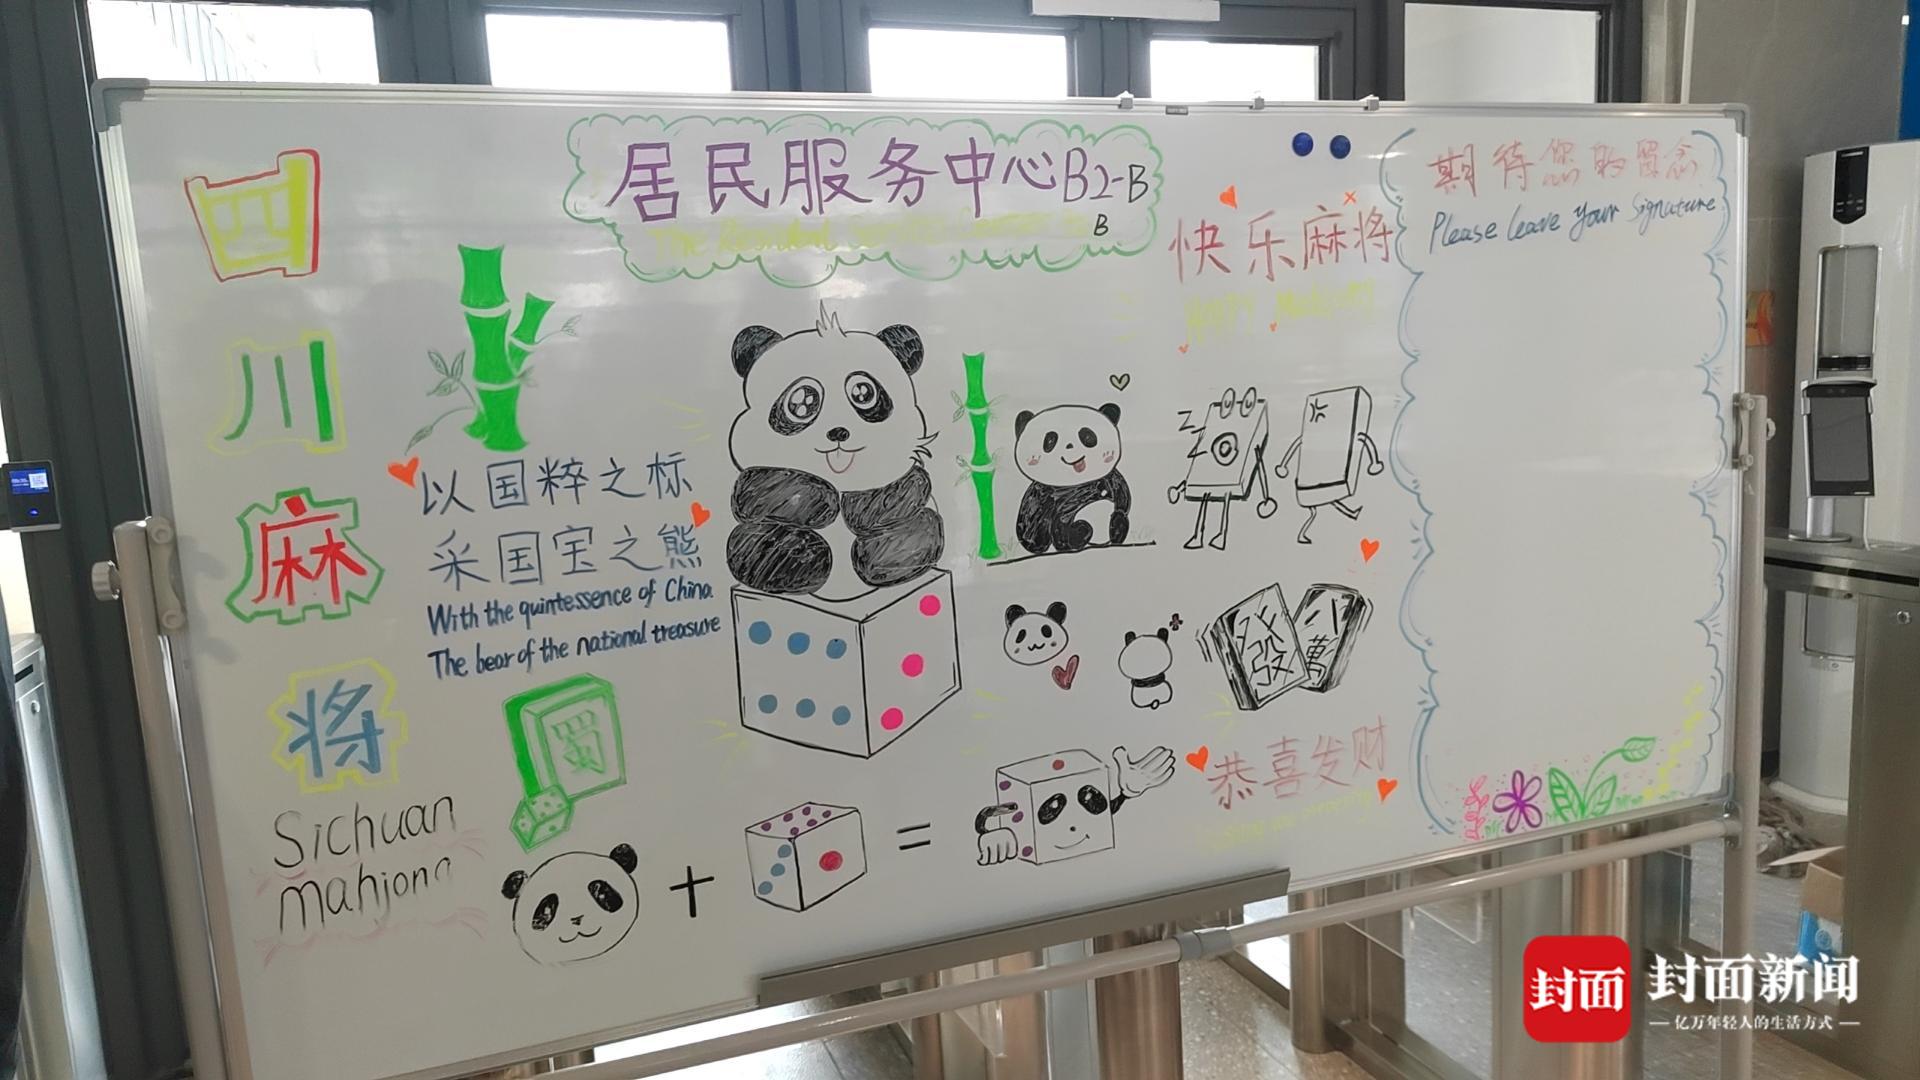 居民服务中心B2-B
The Resident Service Center
B
四
川
麻
将
Sichuan
mahjong
以国粹之标
采国宝之熊
With the quintessence of China
The bear of the national treasure
蜀
+
=
快乐麻将
Happy Mahjong
Z
Z
發
八萬
恭喜发财
期待您的留念
Please leave your signature
封面
封面新闻
亿万年轻人的生活方式